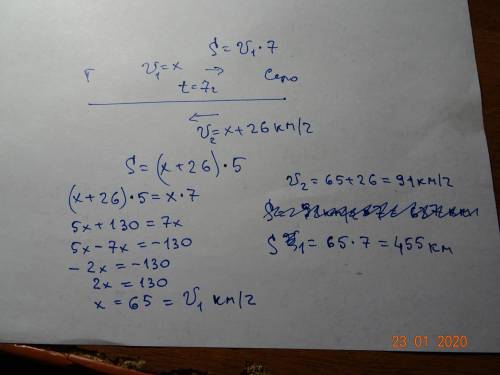 S = V₁ · 7
Г V₁ = x → Село
t = 7г
←
V₂ = x + 26 км/г
S = (x + 26) · 5
(x + 26) · 5 = x · 7
5x + 130 = 7x
5x − 7x = −130
− 2x = −130
2x = 130
x = 65 = V₁ км/г
V₂ = 65 + 26 = 91 км/г
S V₁ = 65 · 7 = 455 км
23 01 2020